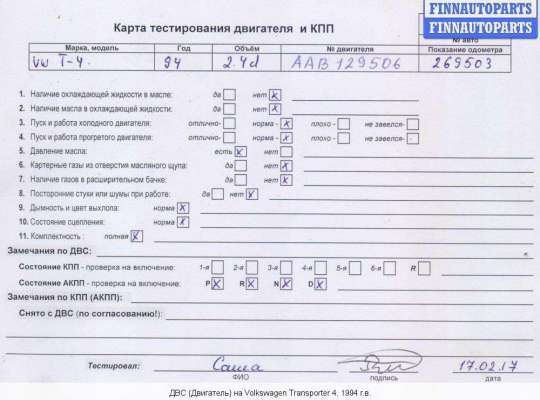 FINNAUTOPARTS
FINNAUTOPARTS
Карта тестирования двигателя и КПП
№ авто
Марка, модель Год Объём № двигателя Показание одометра
VW T-4. 94 2.4d AAB 129506 269503
1. Наличие охлаждающей жидкости в масле: да нет x
2. Наличие масла в охлаждающей жидкости: да нет x
3. Пуск и работа холодного двигателя: отлично- норма - x плохо - не завелся-
4. Пуск и работа прогретого двигателя: отлично- норма - x плохо - не завелся-
5. Давление масла: есть x нет
6. Картерные газы из отверстия масляного щупа: да нет x
7. Наличие газов в расширительном бачке: да нет x
8. Посторонние стуки или шумы при работе: да нет x
9. Дымность и цвет выхлопа: норма x
10. Состояние сцепления: норма x
11. Комплектность : полная x
Замечания по ДВС:
Состояние КПП - проверка на включение: 1-я 2-я 3-я 4-я 5-я 6-я R
Состояние АКПП - проверка на включение: P x R x N x D x
Замечания по КПП (АКПП):
Снято с ДВС (по согласованию!):
Тестировал: Саша 17.02.17
ФИО подпись дата
ДВС (Двигатель) на Volkswagen Transporter 4, 1994 г.в.